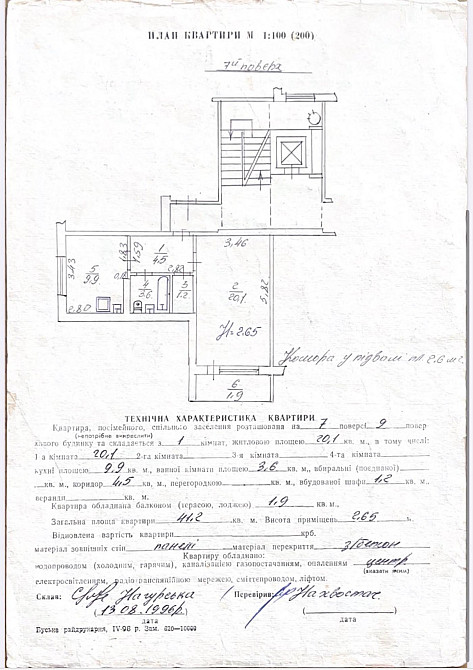 ПЛАН КВАРТИРИ М 1:100 (200)
7ий поверх
3,46
1
4.5
1.83
1.59
2.82
5
9.9
3.43
2
20.1
5.82
4
3.6
3
1.2
2.80
H=2.65
Комора у підвалі пл 2.6 м²
6
1.9
ТЕХНІЧНА ХАРАКТЕРИСТИКА КВАРТИРИ
Квартира, посімейного, спільного заселення розташована на 7 поверсі 9 повер
(непотрібне викреслити)
хового будинку та складається з 1 кімнат, житловою площею 20,1 кв. м., в тому числі:
1-а кімната 20,1 2-га кімната 3-я кімната 4-та кімната
кухні площею 9,9 кв. м., ванної кімнати площею 3,6 кв. м., вбиральні (поєднаної)
кв. м., коридор 4,5 кв. м., перегородкою кв. м., вбудованої шафи 1,2 кв. м.,
веранди кв. м.
Квартира обладнана балконом (терасою, лоджею) 1,9 кв. м.,
Загальна площа квартири 41,2 кв. м. Висота приміщень 2.65
Відновлена вартість квартири крб.
матеріал зовнішніх стін панелі матеріал перекриття з/бетон
Квартиру обладнано:
водопроводом (холодним, гарячим), каналізацією газопостачанням, опаленням центр.
(вказати яким)
електросвітленням, радіотрансляційною мережею, сміттєпроводом, ліфтом.
Склав: Нагурська Перевірив: Нахвостач
13.08.1996р
дата дата
Буська райдрукарня, IV-96 р. Зам. 620—10000